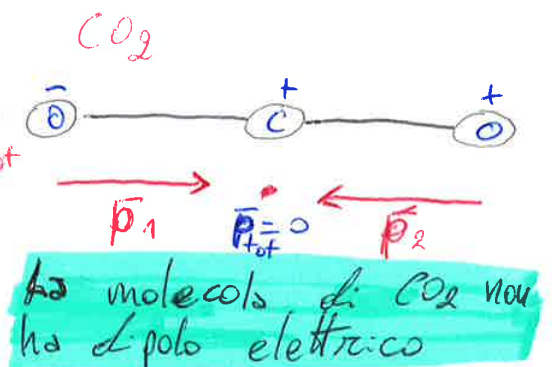 CO2
- + +
O C O
ot
p̄1 p̄tot = 0 p̄2
La molecola di CO2 non
ha dipolo elettrico